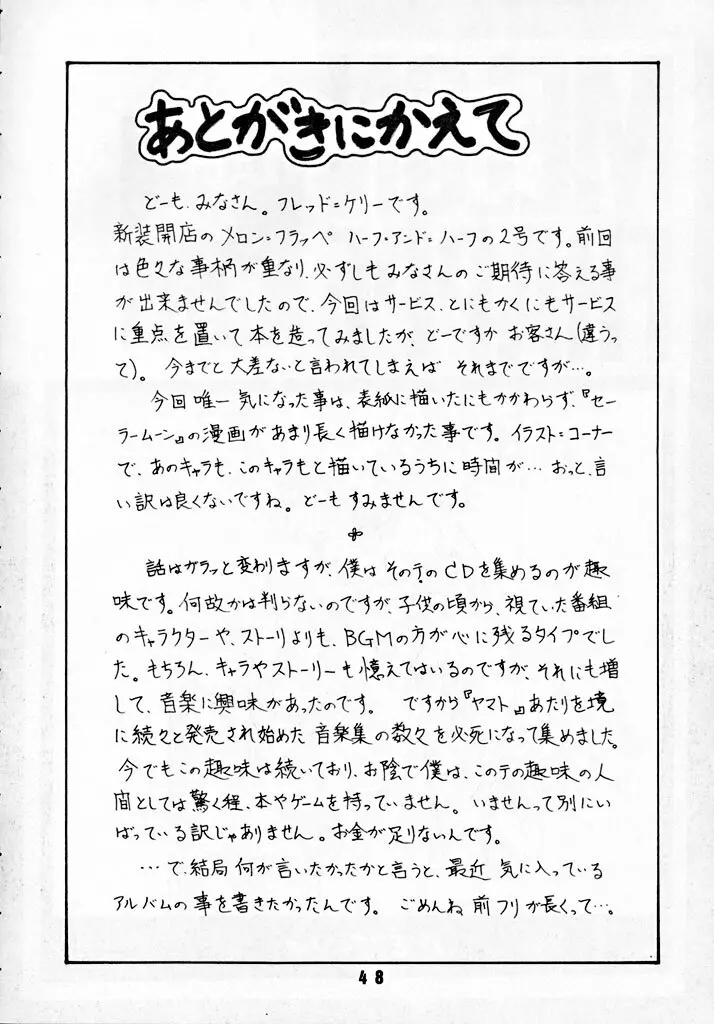 あとがきにかえて
どーも、みなさん。フレッド=ケリーです。
新装開店のメロン=フラッペ ハーフ=アンド=ハーフの2号です。前回
は色々な事柄が重なり、必ずしもみなさんのご期待に答える事
が出来ませんでしたので、今回はサービス、とにもかくにもサービス
に重点を置いて本を造ってみましたが、どーですか お客さん(違うっ
て)。 今までと大差ないと言われてしまえば それまでですが…。
今回唯一 気になった事は、表紙に描いたにもかかわらず、『セー
ラームーン』の漫画があまり長く描けなかった事です。イラスト=コーナー
で、あのキャラも、このキャラもと描いているうちに時間が… おっと、言
い訳は良くないですね。どーも すみませんです。
話はガラッと変わりますが、僕は そのテのCDを集めるのが趣
味です。何故かは判らないのですが、子供の頃から、視ていた番組
のキャラクターや、ストーリよりも、BGMの方が心に残るタイプでし
た。もちろん、キャラやストーリーも憶えてはいるのですが、それにも増
して、音楽に興味があったのです。 ですから『ヤマト』あたりを境
に続々と発売され始めた 音楽集の数々を必死になって集めました。
今でもこの趣味は続いており、お陰で僕は、このテの趣味の人
間としては驚く程、本やゲームを持っていません。いませんって別にい
ばっている訳じゃありません。お金が足りないんです。
…で、結局 何が言いたかったかと言うと、最近 気に入っている
アルバムの事を書きたかったんです。 ごめんね 前フリが長くって…。
48